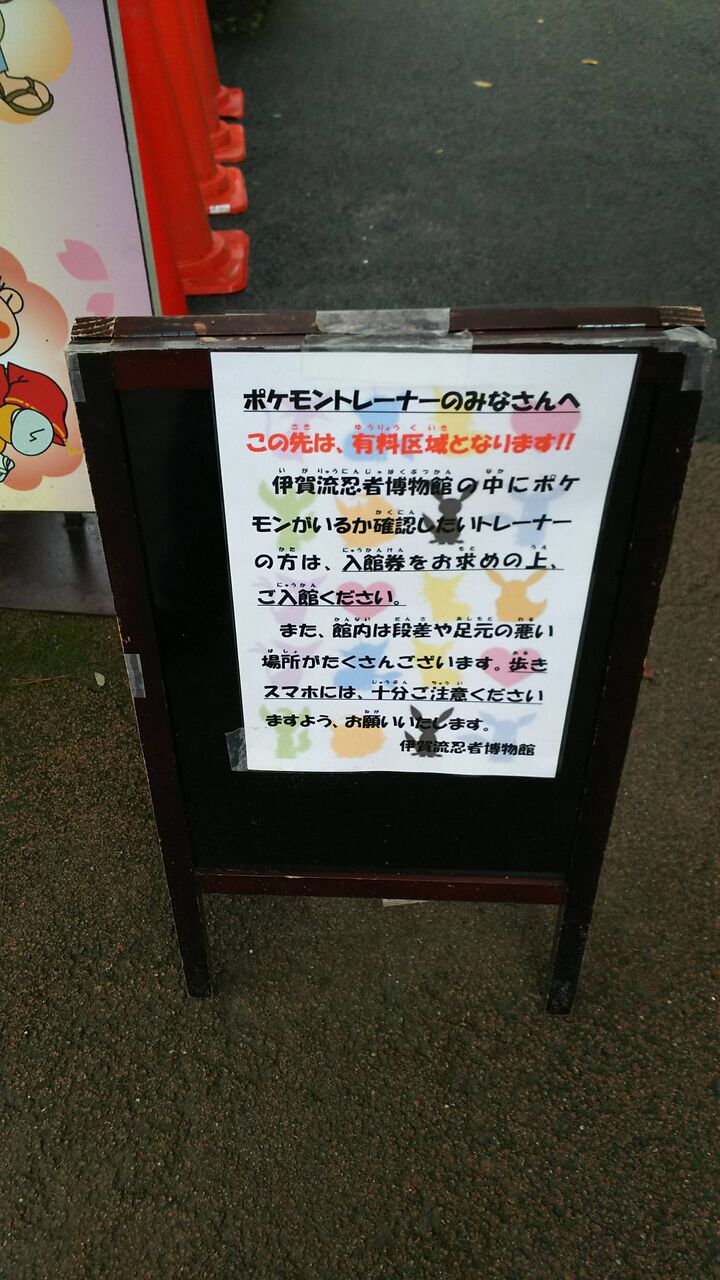 ポケモントレーナーのみなさんへ
この先は、有料区域となります!!
伊賀流忍者博物館の中にポケ
モンがいるか確認したいトレーナー
の方は、入館券をお求めの上、
ご入館ください。
また、館内は段差や足元の悪い
場所がたくさんございます。歩き
スマホには、十分ご注意ください
ますよう、お願いいたします。
伊賀流忍者博物館